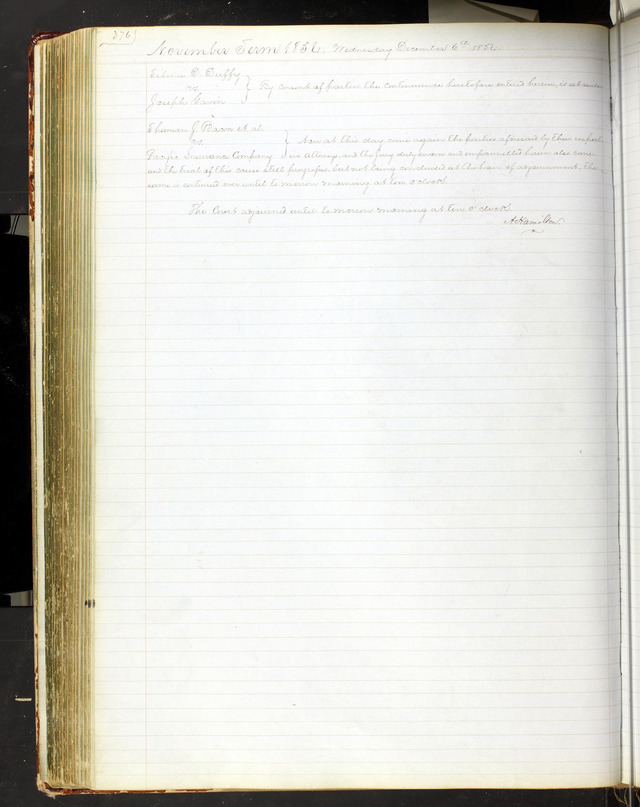 276
November Term 1854. Wednesday December 6th 1854.
Duffy
vs.
By consent of parties the continuance heretofore entered herein, is set aside
Joseph
J. et al.
vs.
Now at this day come again the parties aforesaid by their respect-
Pacific Insurance Company
ive attorneys and the jury duly sworn and impannelled herein also come
and the trial of this cause still progresses, but not being concluded at the hour of adjournment, the
same is continued over until to morrow morning at ten o'clock.
The Court adjourned until to morrow morning at ten o'clock
A Hamilton